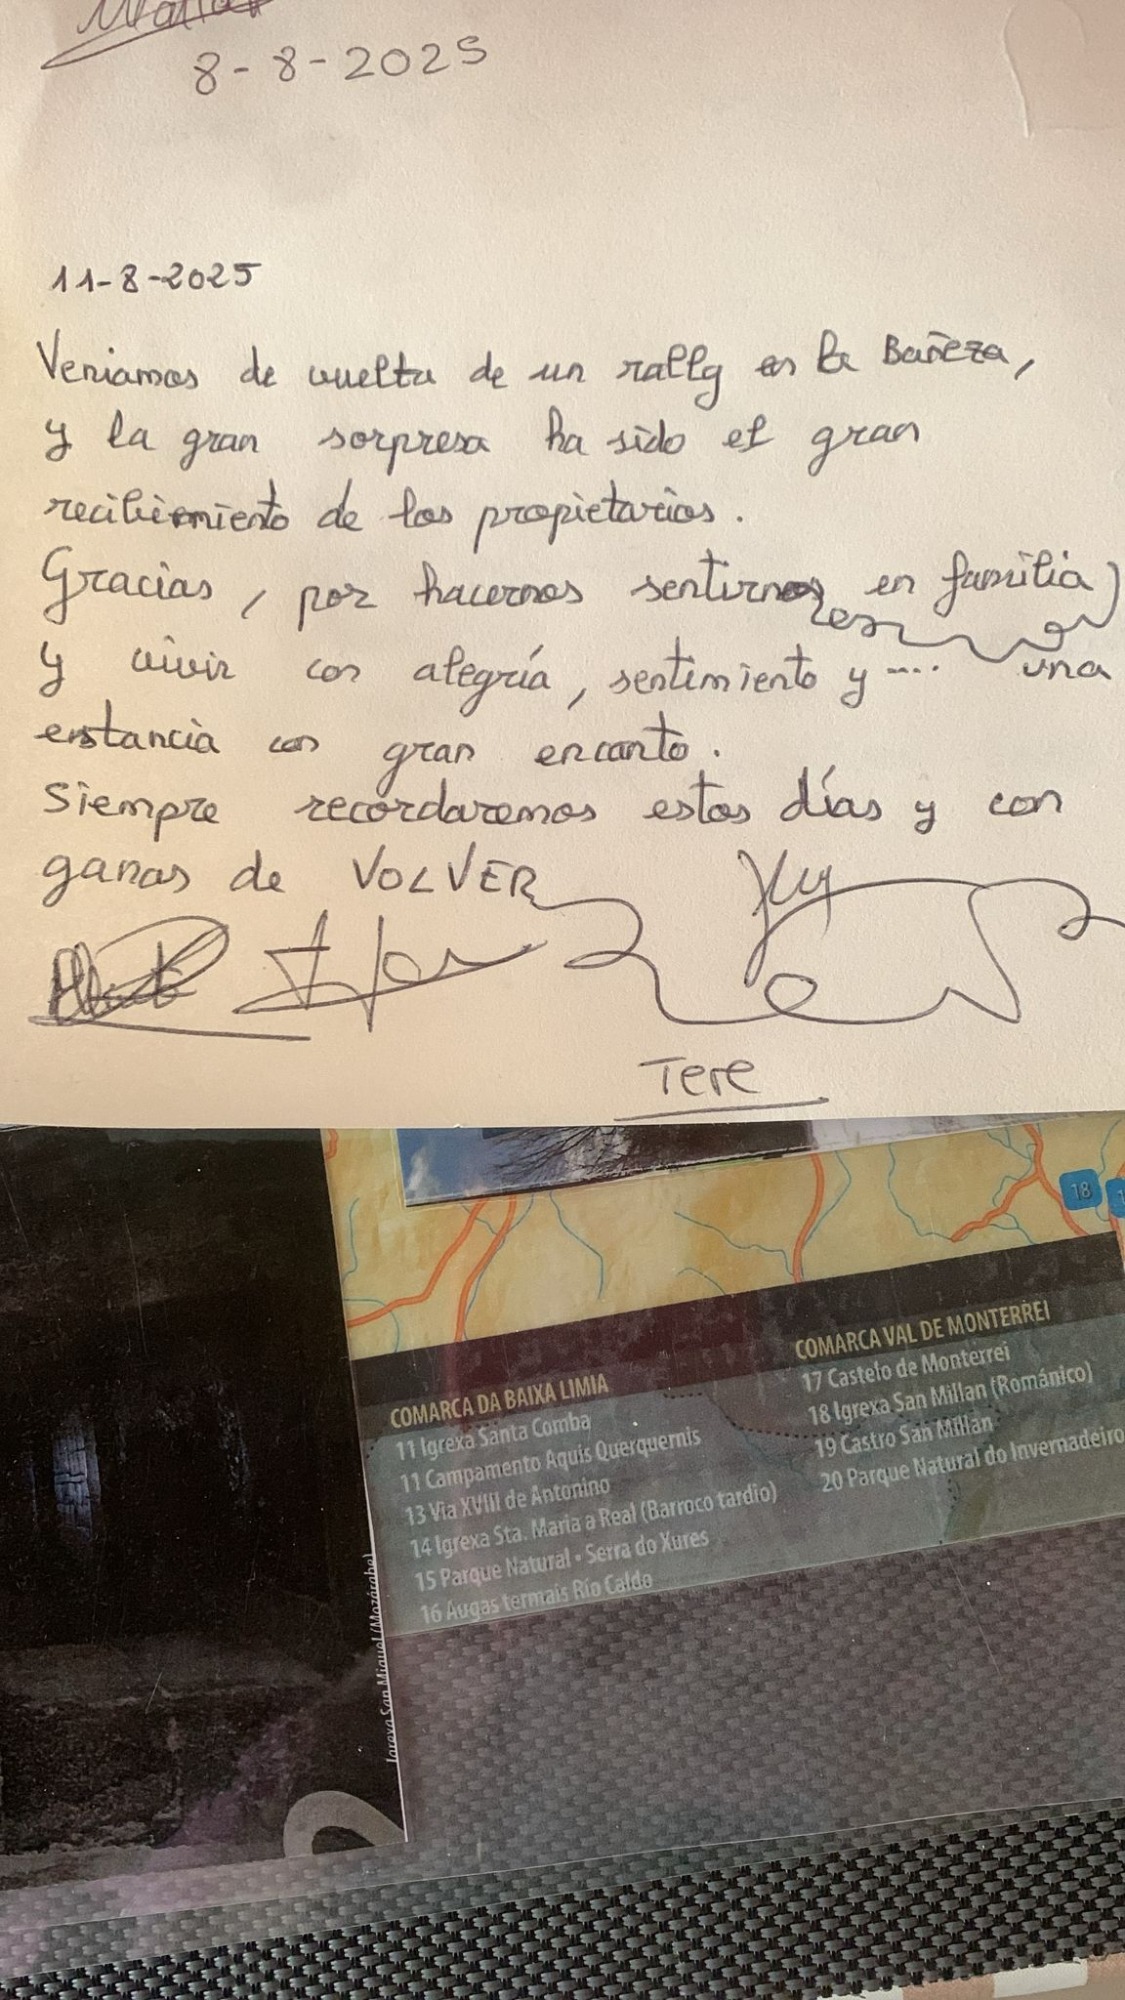 8-8-2025
11-8-2025
Veniamos de vuelta de un rally en la Bañeza,
y la gran sorpresa ha sido el gran
recibiemiento de los propietarios.
Gracias, por hacernos sentirnos en familia
y vivir con alegría, sentimiento y .... una
enstancia con gran encanto.
Siempre recordaremos estos días y con
ganas de VOLVER
Tere
18
COMARCA DA BAIXA LIMIA
11 Igrexa Santa Comba
11 Campamento Aquis Querquernis
13 Via XVIII de Antonino
14 Igrexa Sta. Maria a Real (Barroco tardio)
15 Parque Natural • Serra do Xures
16 Augas termais Río Caldo
COMARCA VAL DE MONTERREI
17 Castelo de Monterrei
18 Igrexa San Millan (Románico)
19 Castro San Millan
20 Parque Natural do Invernadeiro
Igrexa San Miguel (Mozárabe)